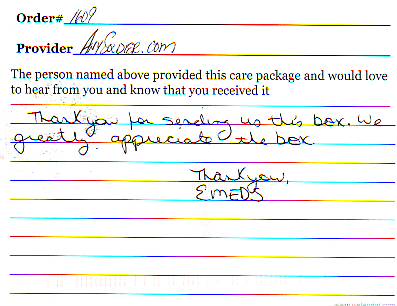 Order# 1609
Provider AnySoldier.com
The person named above provided this care package and would love
to hear from you and know that you received it
Thank you for sending us this box. We
greatly appreciate the box.
Thank you,
EMEDS